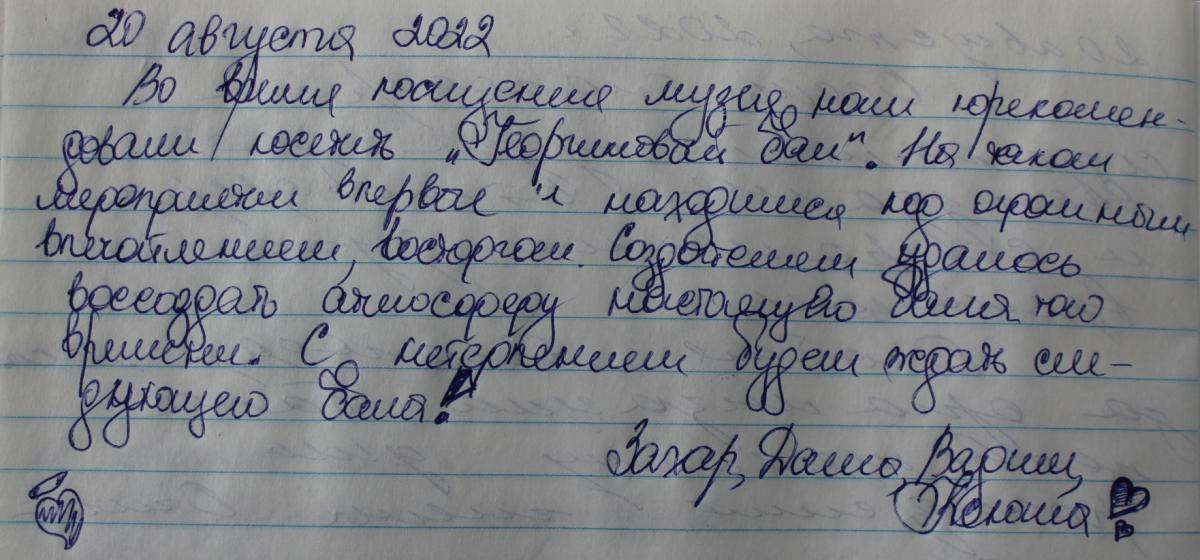 20 августа 2022
Во время посещения музея нам порекомен-
довали посетить „Георгиновый бал“. На таком
мероприятии впервые и находимся под огромным
впечатлением, восторгом. Создателем удалось
воссоздать атмосферу настоящего бала того
времени. С нетерпением будем ждать сле-
дующего бала!
Захар, Даша, Вадим,